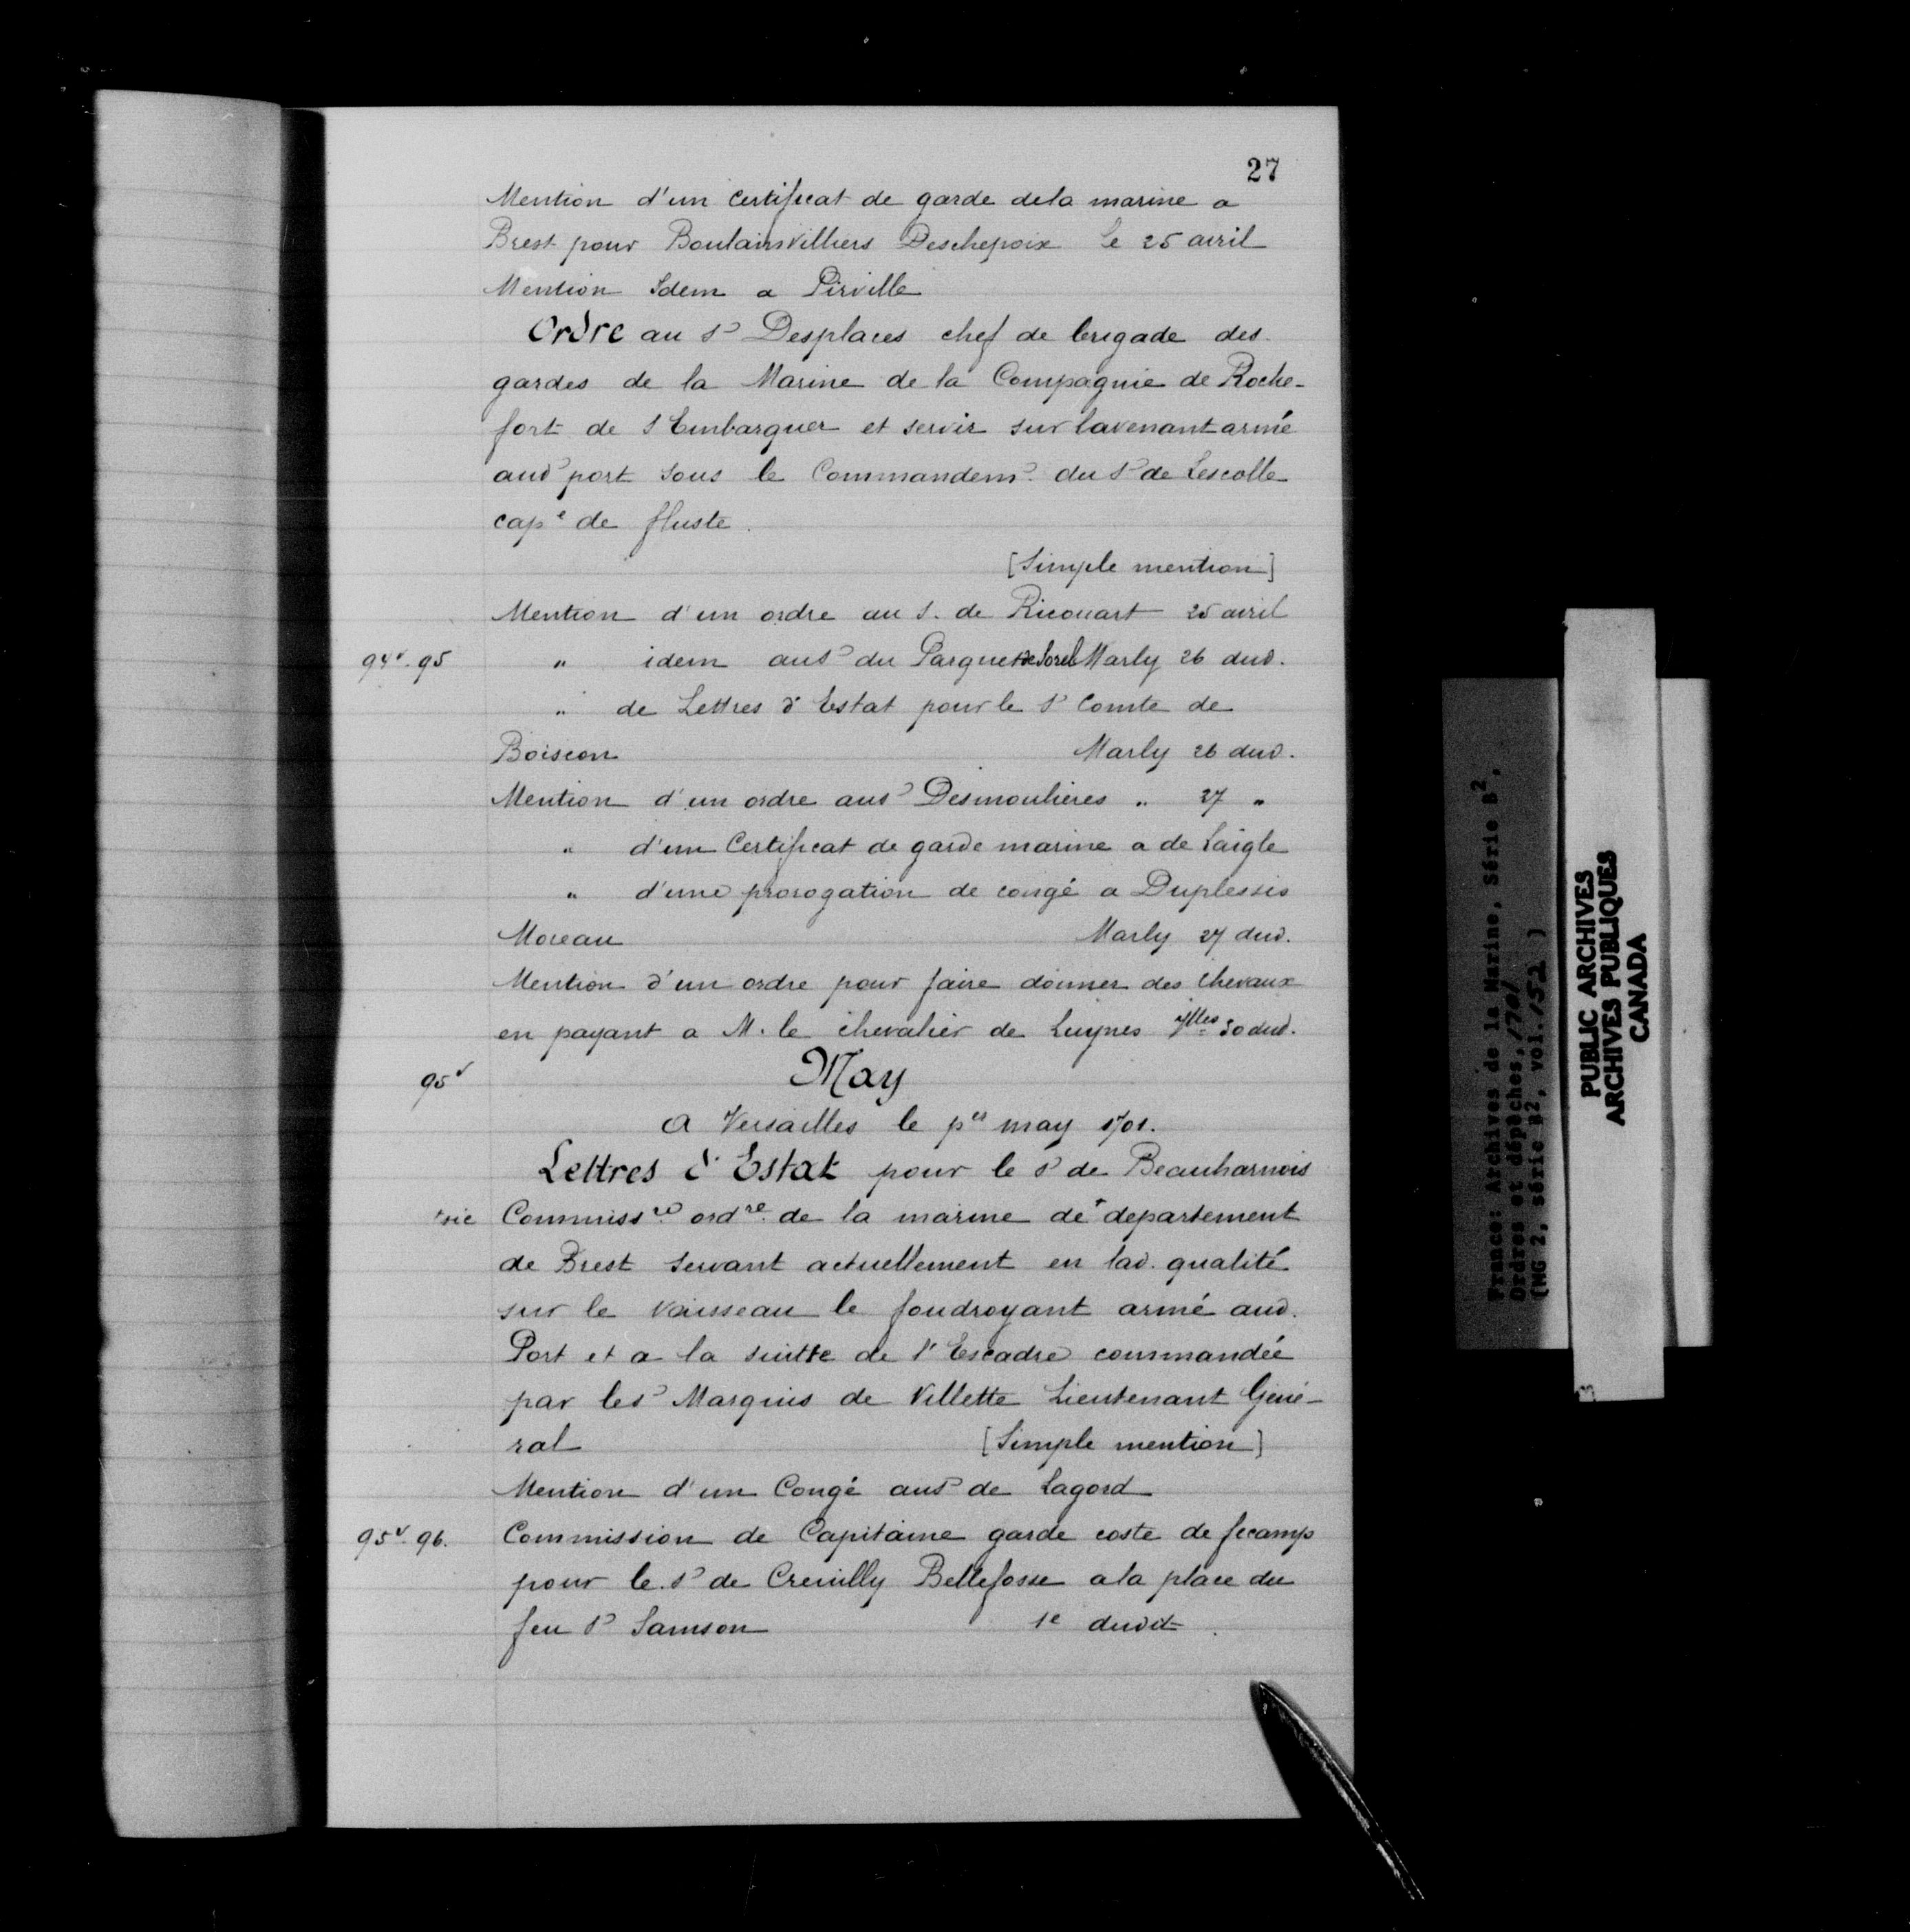 27
Mention d'un Certificat de garde dela marine a
Brest pour Boulainvilliers Deschepoix le 25 avril
Mention Idem a Pirville
Ordre au Sr Desplaces chef de brigade des
gardes de la Marine de la Compagnie de Roche-
fort de s'Embarquer et servir sur lavenant armé
aud port sous le Commandemt du Sr de Lescolle
cape de fluste.
[Simple mention]
Mention d'un ordre au S. de Ricouart 25 avril
94v. 95 " idem au Sr du Parquet Marly 26 dud.
" de Lettres d'Estat pour le Sr Comte de
Boiseon Marly 26 dud.
Mention d'un ordre au Sr Desmoulieres " 27 "
" d'un Certificat de garde marine a de Laigle
" d'une prorogation de congé a Duplessis
Moreau Marly 27 dud.
Mention d'un ordre pour faire donner des chevaux
en payant a M. le chevalier de Luynes 30 dud.
95v May
A Versailles le per may 1701.
Lettres d'Estat pour le Sr de Beauharnois
+sic Commissre ordre de la marine de+ departement
de Brest servant actuellement en lad. qualité
sur le vaisseau le foudroyant armé aud.
Port et a la suitte de l'Escadre commandée
par le Sr Marquis de Villette Lieutenant Géné-
ral [Simple mention]
Mention d'un Congé au Sr de Lagord
95v. 96. Commission de Capitaine garde coste de fecamp
pour le Sr de Creuilly Bellefosse a la place du
feu Sr Samson 1e dudit.
France: Archives de la Marine, Série B2,
Ordres et dépêches, 1701
(MG 2, série B2, vol. 152 )
PUBLIC ARCHIVES
ARCHIVES PUBLIQUES
CANADA